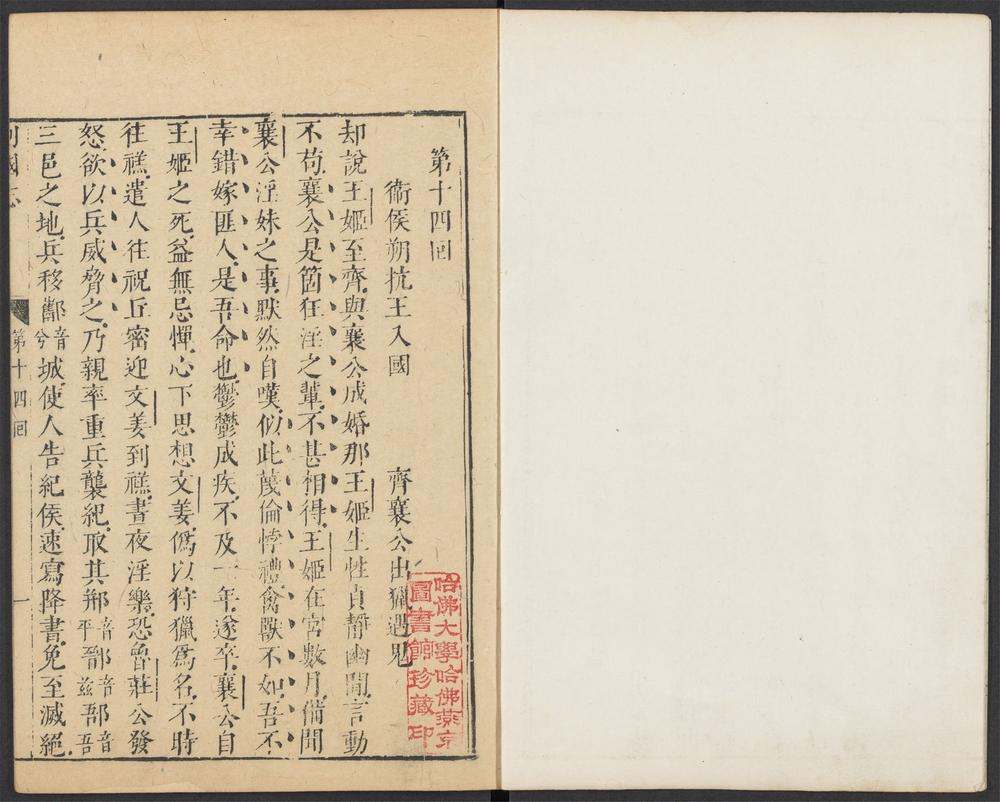 第十四回
衞侯朔抗王入國　齊襄公出獵遇鬼
却說王姬至齊與襄公成婚那王姬生性貞靜幽閒言動
不苟襄公是箇狂淫之輩不甚相得王姬在宮數月備聞
襄公淫妹之事默然自嘆似此蔑倫悖禮禽獸不如吾不
幸錯嫁匪人是吾命也鬱鬱成疾不及一年遂卒襄公自
王姬之死益無忌憚心下思想文姜僞以狩獵爲名不時
往禚遣人往祝丘密迎文姜到禚晝夜淫樂恐魯莊公發
怒欲以兵威脅之乃親率重兵襲紀取其郱音平鄑音兹郚音吾
三邑之地兵移酅音兮城使人告紀侯速寫降書免至滅絕
列國志　第十四回　一
哈佛大學哈佛燕京
圖書館珍藏印